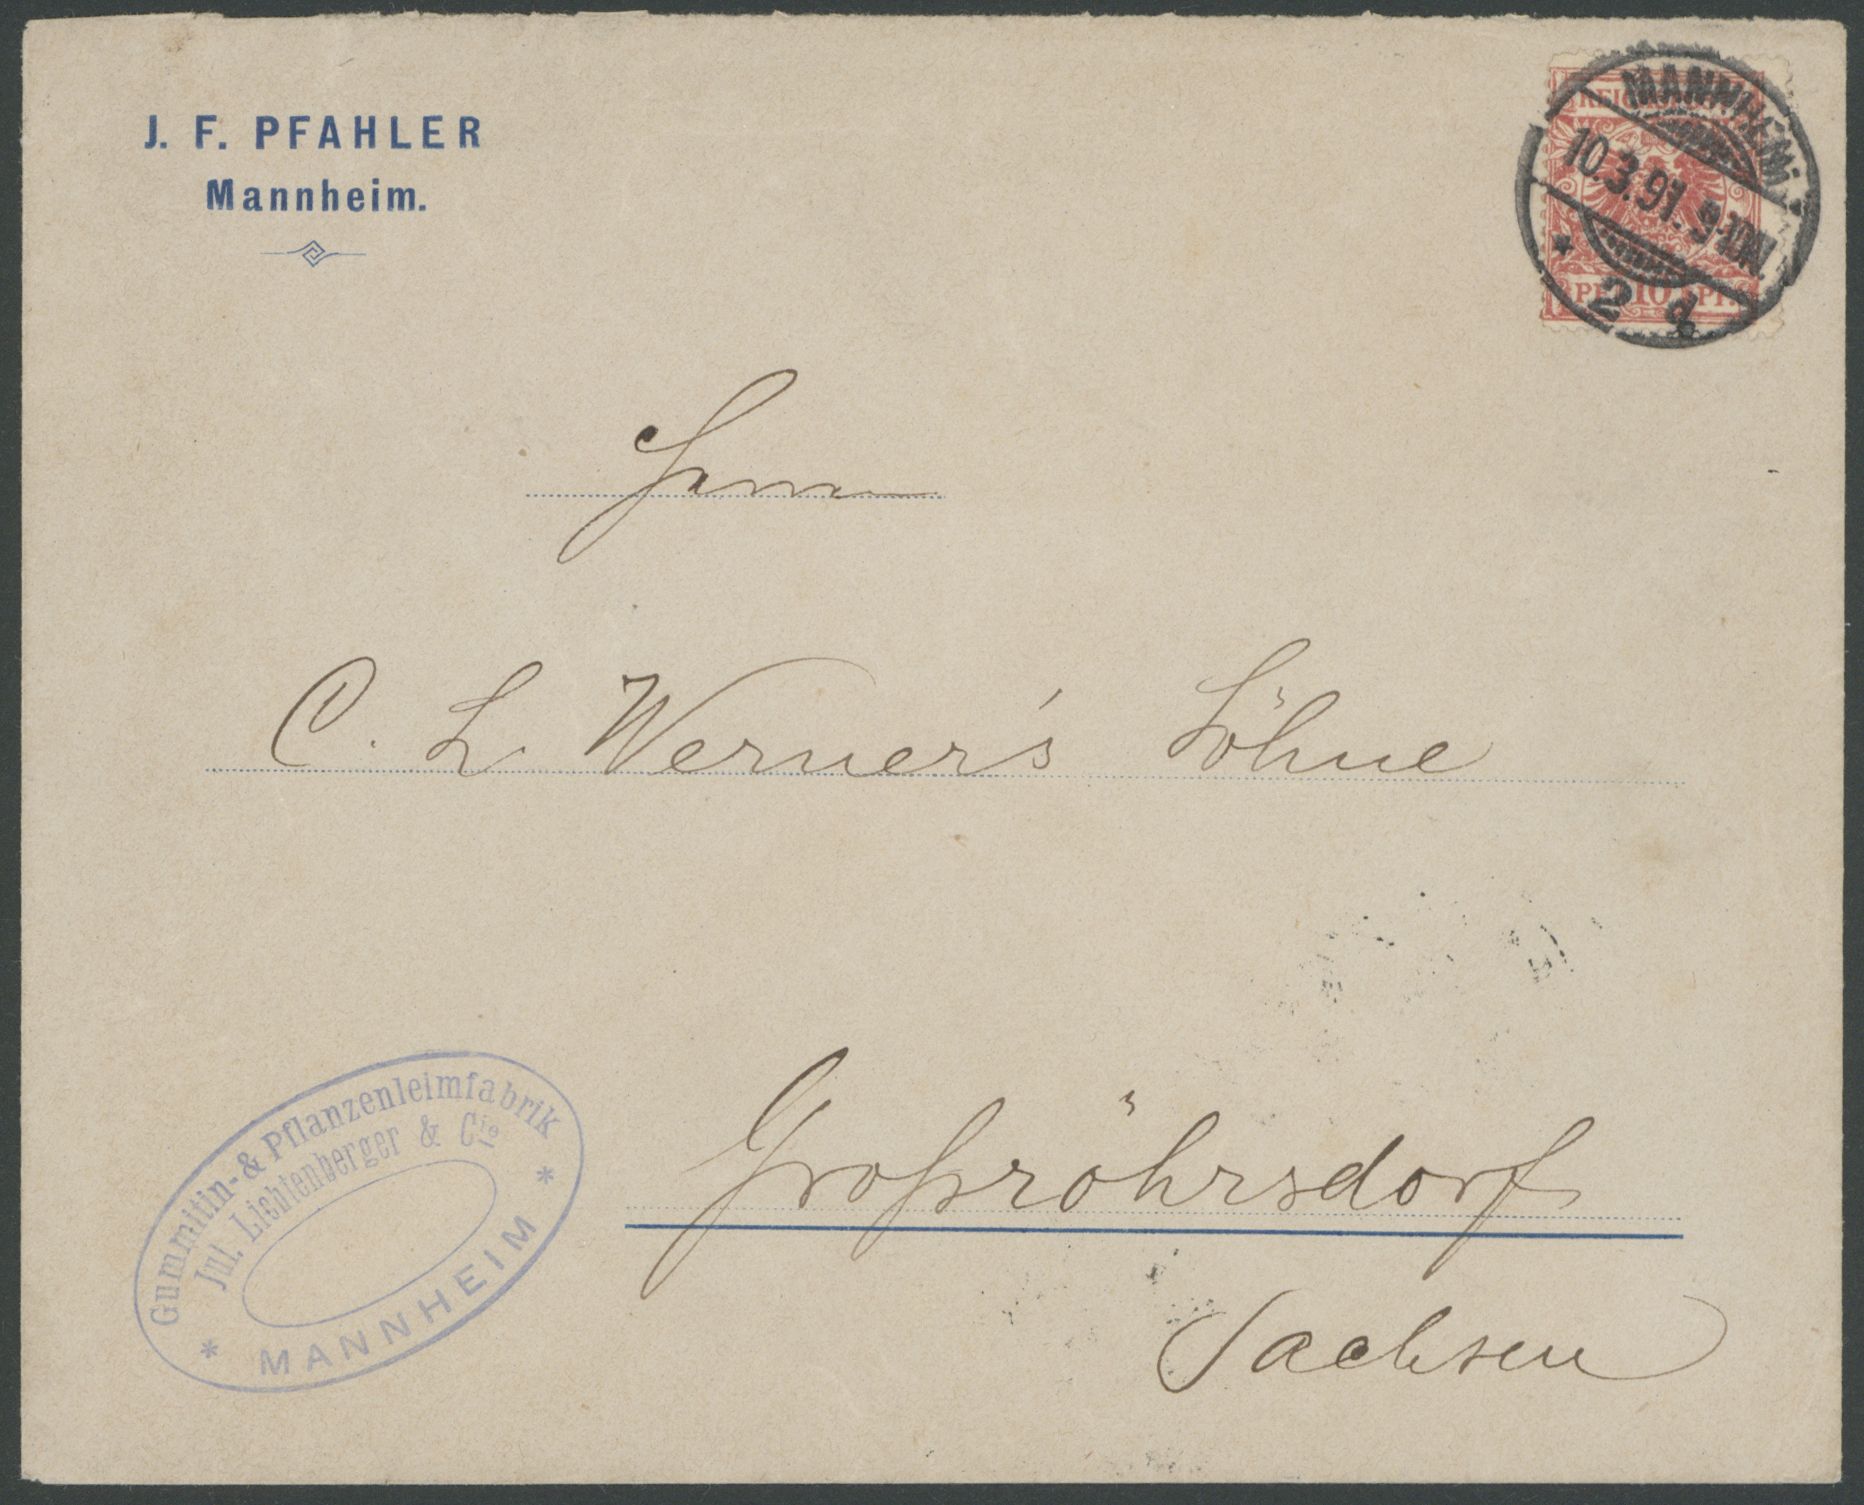 J. F. PFAHLER
Mannheim.
MANNHEIM
10.3.91. 9-10N.
2 d
PF. 10 PF.
Herrn
C. L. Werner's Söhne
Großröhrsdorf
Sachsen
Gummitin- & Pflanzenleimfabrik
Jul. Lichtenberger & Cie
* MANNHEIM *